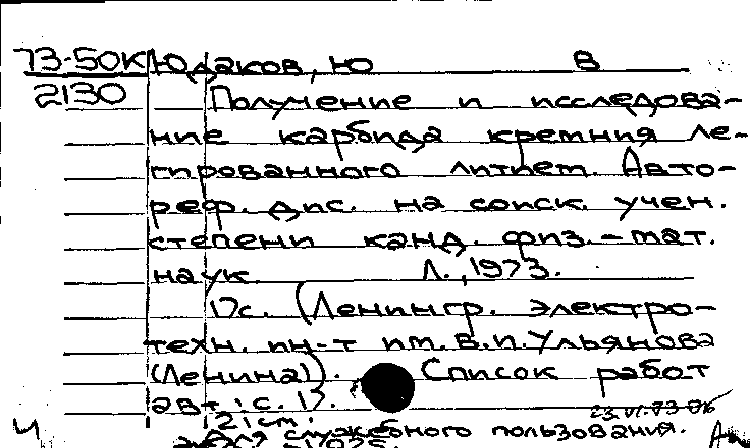 73-50К Юдаков, Ю В
2130 Получение и исследова-
ние карбида кремния ле-
гированного литием. Авто-
реф. дис. на соиск. учен.
степени канд. физ.-мат.
наук. Л., 1973.
17с. (Ленингр. электро-
техн. ин-т им. В.И. Ульянова
(Ленина)). Список работ
авт.: с. 17.
23.VI.73
служебного пользования.